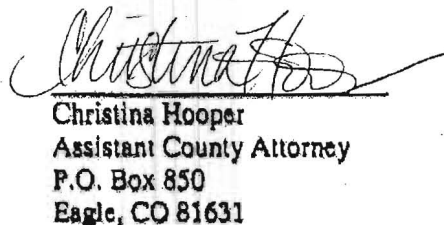 Christina Hoo
Christina Hooper
Assistant County Attorney
P.O. Box 850
Eagle, CO 81631